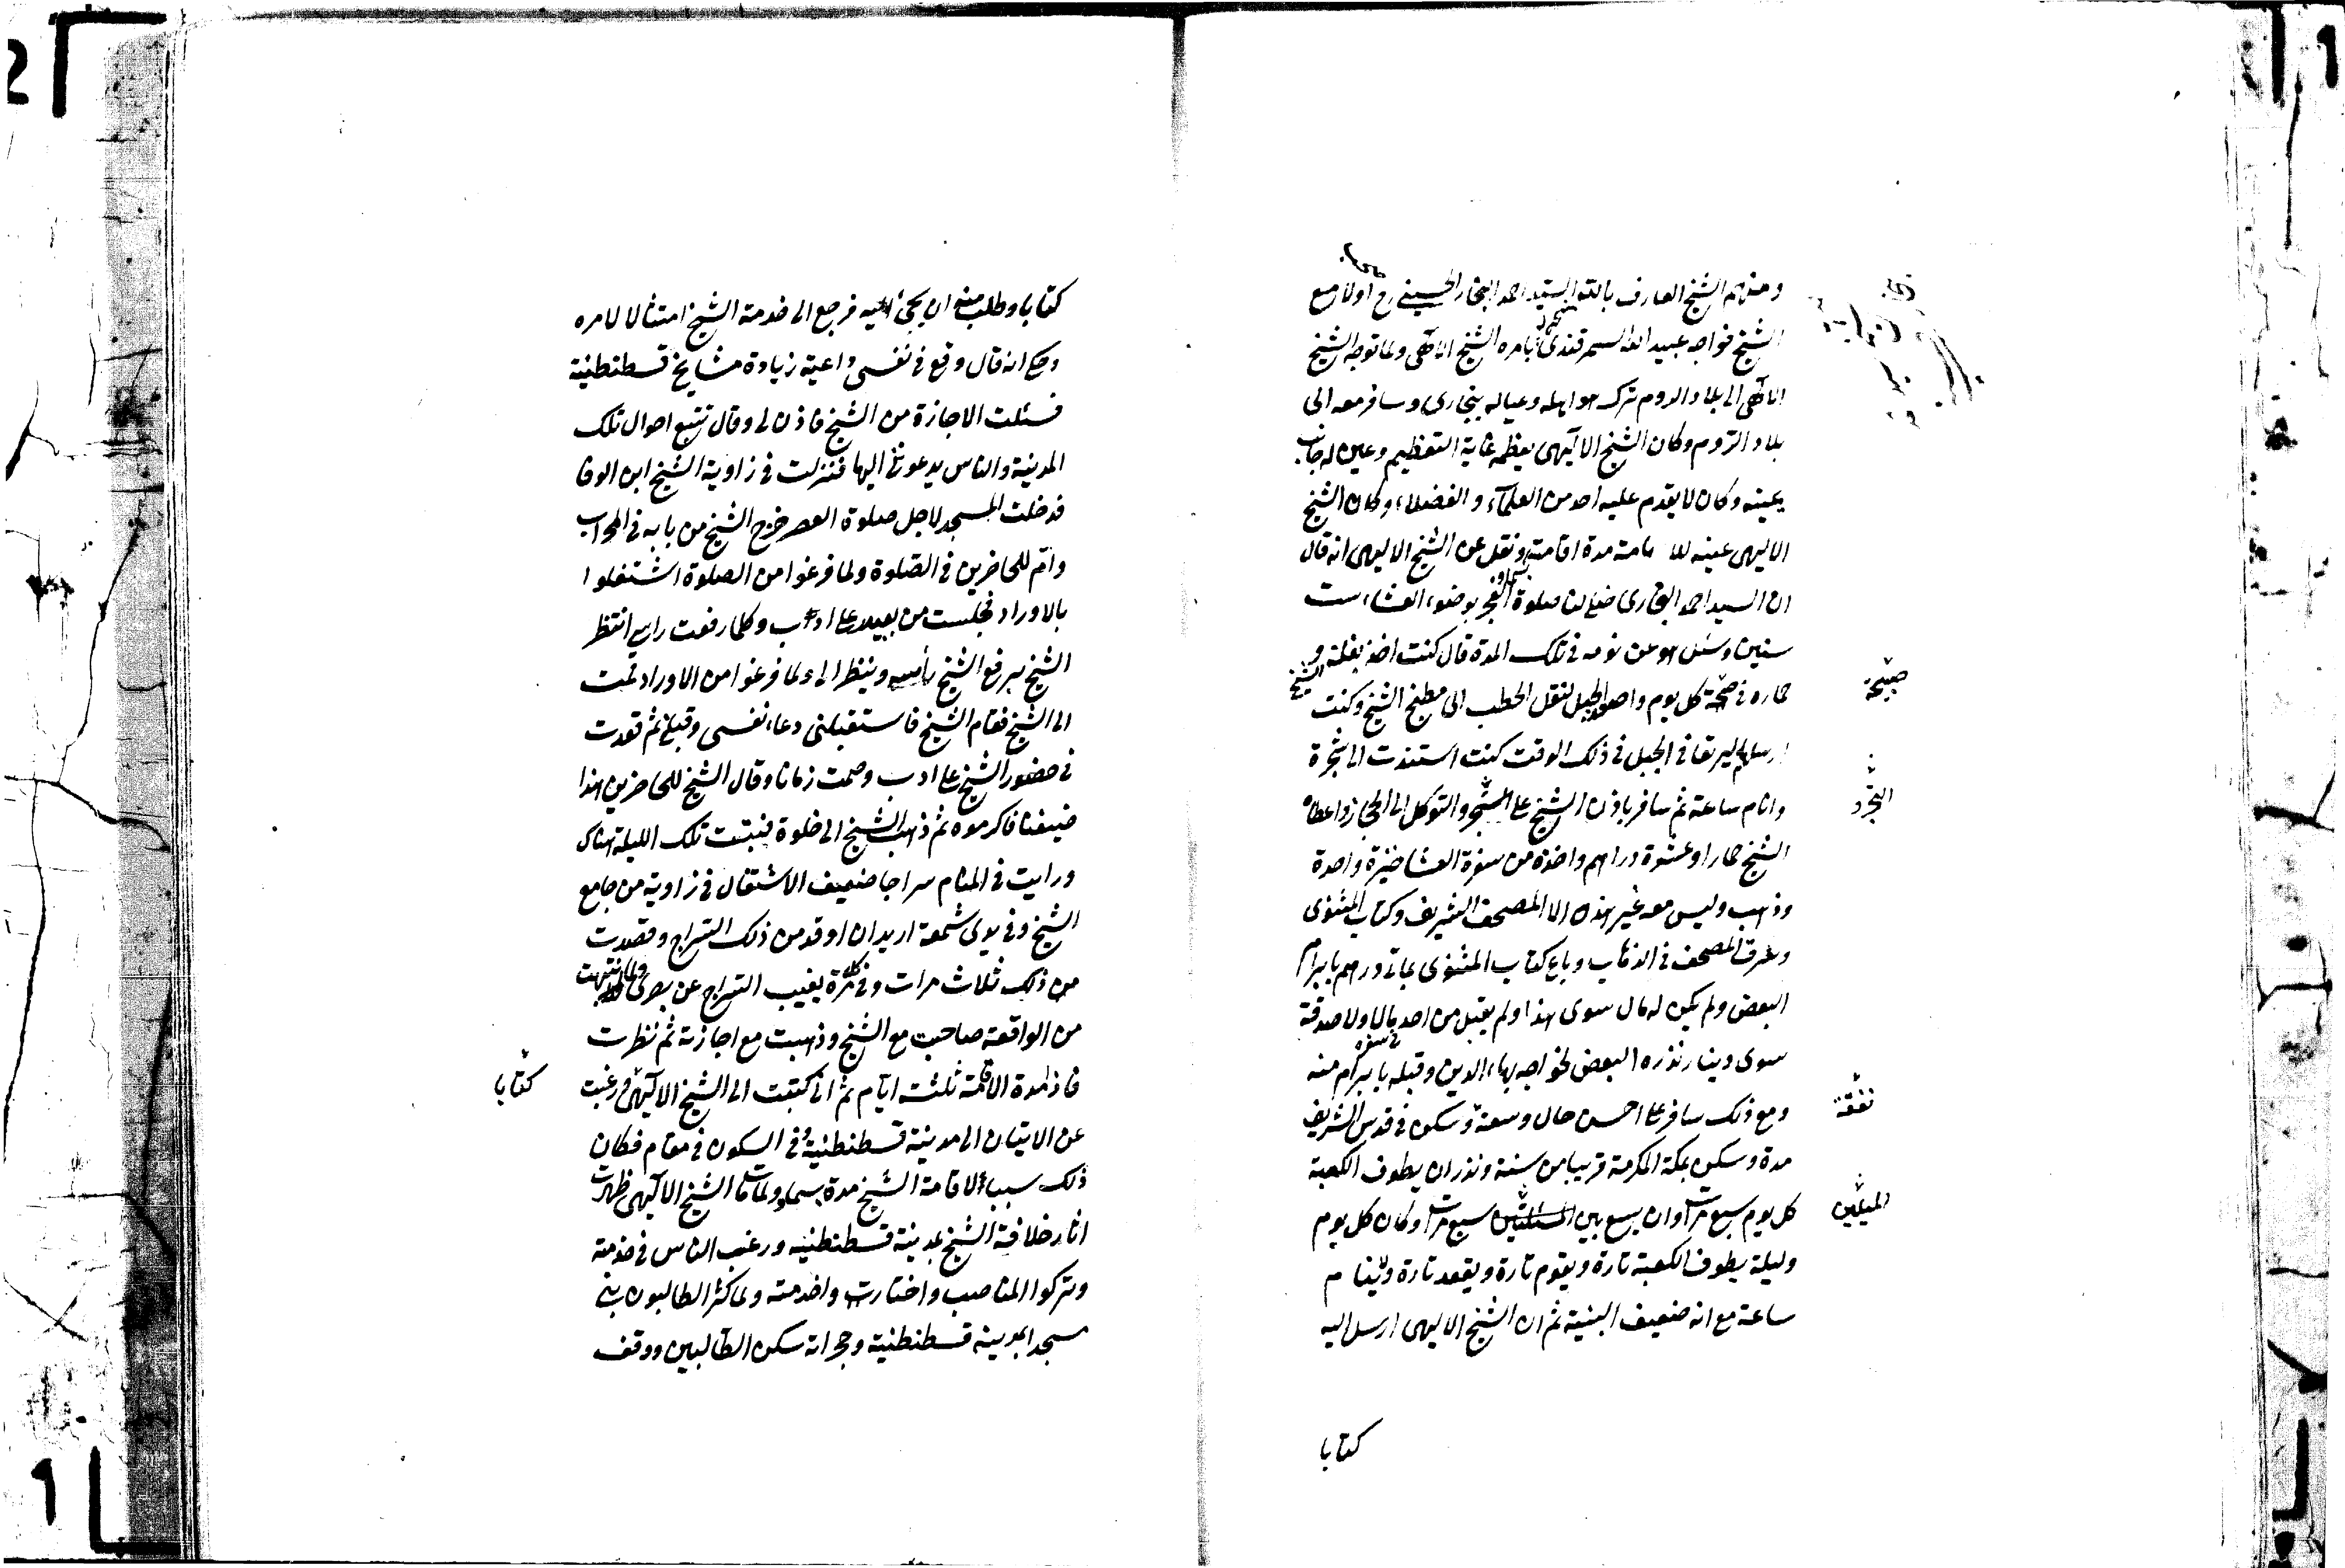 ومنهم الشيخ العارف بالله السيد احمد البخارى الحسينى رح اولا مع
الشيخ خواجه عبيد الله السمرقندى بامره الشيخ الالهى ولما توجه الشيخ
الالهى الى بلاد الروم ترك هو اهله وعياله ببخارى وسافر معه الى
بلاد الروم وكان الشيخ الالهى يعظمه غاية التعظيم وعين له جانب
يمينه وكان لا يقدم عليه احد من العلماء والفضلاء وكان الشيخ
الالهى عينه للامامة مدة اقامته ونقل عن الشيخ الالهى انه قال
ان السيد احمد البخارى صلى لنا صلوة الفجر بوضوء العشاء ست
سنين وسئل هو عن نومه فى تلك المدة قال كنت اخذ بغلة الشيخ و
حماره فى صبيحة كل يوم واصعد الجبل لنقل الحطب الى مطبخ الشيخ وكنت
صبيحة
ارسلهما ليرتعا فى الجبل فى ذلك الوقت كنت استندت الى شجرة
وانام ساعة ثم سافر باذن الشيخ على التجرد والتوكل الى الحجاز واعطاه
التجرد
الشيخ حمارا وعشرة دراهم واخذه من سفرة العشا خبزة واحدة
وذهب وليس معه غير هذه الا المصحف الشريف وكتاب المثنوى
وسرق المصحف فى الذهاب وباع كتاب المثنوى بمائتى درهم بابرام
البعض ولم يكن له مال سوى هذا ولم يقبل من احد مالا ولا صدقة
سوى دينار نذره البعض لخواجه بهاء الدين وقبله بابرام منه
ومع ذلك سافر على احسن حال وسعة وسكن فى قدس الشريف
نفقة
مدة وسكن بمكة المكرمة قريبا من سنة ونذر ان يطوف الكعبة
كل يوم سبع مرات وان يسعى بين الميلين سبع مرات وكان كل يوم
الميلين
وليلة يطوف الكعبة تارة ويقوم تارة ويقعد تارة ولاينام
ساعة مع انه ضعيف البنية ثم ان الشيخ الالهى ارسل اليه
كتابا
كتابا وطلب منه ان يجئ اليه فرجع الى خدمة الشيخ امتثالا لامره
وحكى انه قال وقع فى نفسى داعية زيادة مشايخ قسطنطنية
فسئلت الاجازة من الشيخ فاذن لى وقال تتبع احوال تلك
المدينة والناس يدعوننى اليها فنزلت فى زاوية الشيخ ابن الوفا
فدخلت المسجد لاجل صلوة العصر خرج الشيخ من بابه فى المحراب
وأم للحاضرين فى الصلوة ولما فرغوا من الصلوة اشتغلوا
بالاوراد فجلست من بعيد على ادب وكلما رفعت راسى انتظر
الشيخ يرفع الشيخ رأسه وينظر الى ولما فرغوا من الاوراد قمت
الى الشيخ فقام الشيخ فاستقبلنى وعانقنى وقبلنى ثم قعدت
فى حضور الشيخ على ادب وصمت زمانا وقال الشيخ للحاضرين هذا
ضيفنا فاكرموه ثم ذهب الشيخ الى خلوة فبت تلك الليلة هناك
ورايت فى المنام سراجا ضعيف الاشتعال فى زاوية من جامع
الشيخ وفى يدى شمعة اريد ان اوقد من ذلك السراج وقصدت
من ذلك ثلاث مرات وفى كل مرة يغيب السراج عن بصرى ولما انتبهت
من الواقعة صاحبت مع الشيخ وذهبت مع اجازته ثم نظرت
فاذا مدة الاقامة ثلثة ايام ثم انى كتبت الى الشيخ الالهى ورغبت
كتابا
عن الاتيان الى مدينة قسطنطنية وفى السكون فى مقام فكان
ذلك سببا لاقامة الشيخ مدة بسماو ولما مات الشيخ الالهى ظهرت
اثار خلافة الشيخ بمدينة قسطنطنيه ورغب الناس فى خدمته
وتركوا المناصب واختاروا خدمته ولما كثر الطالبون بنى
مسجدا بمدينة قسطنطنية وحجرات لسكن الطالبين ووقف